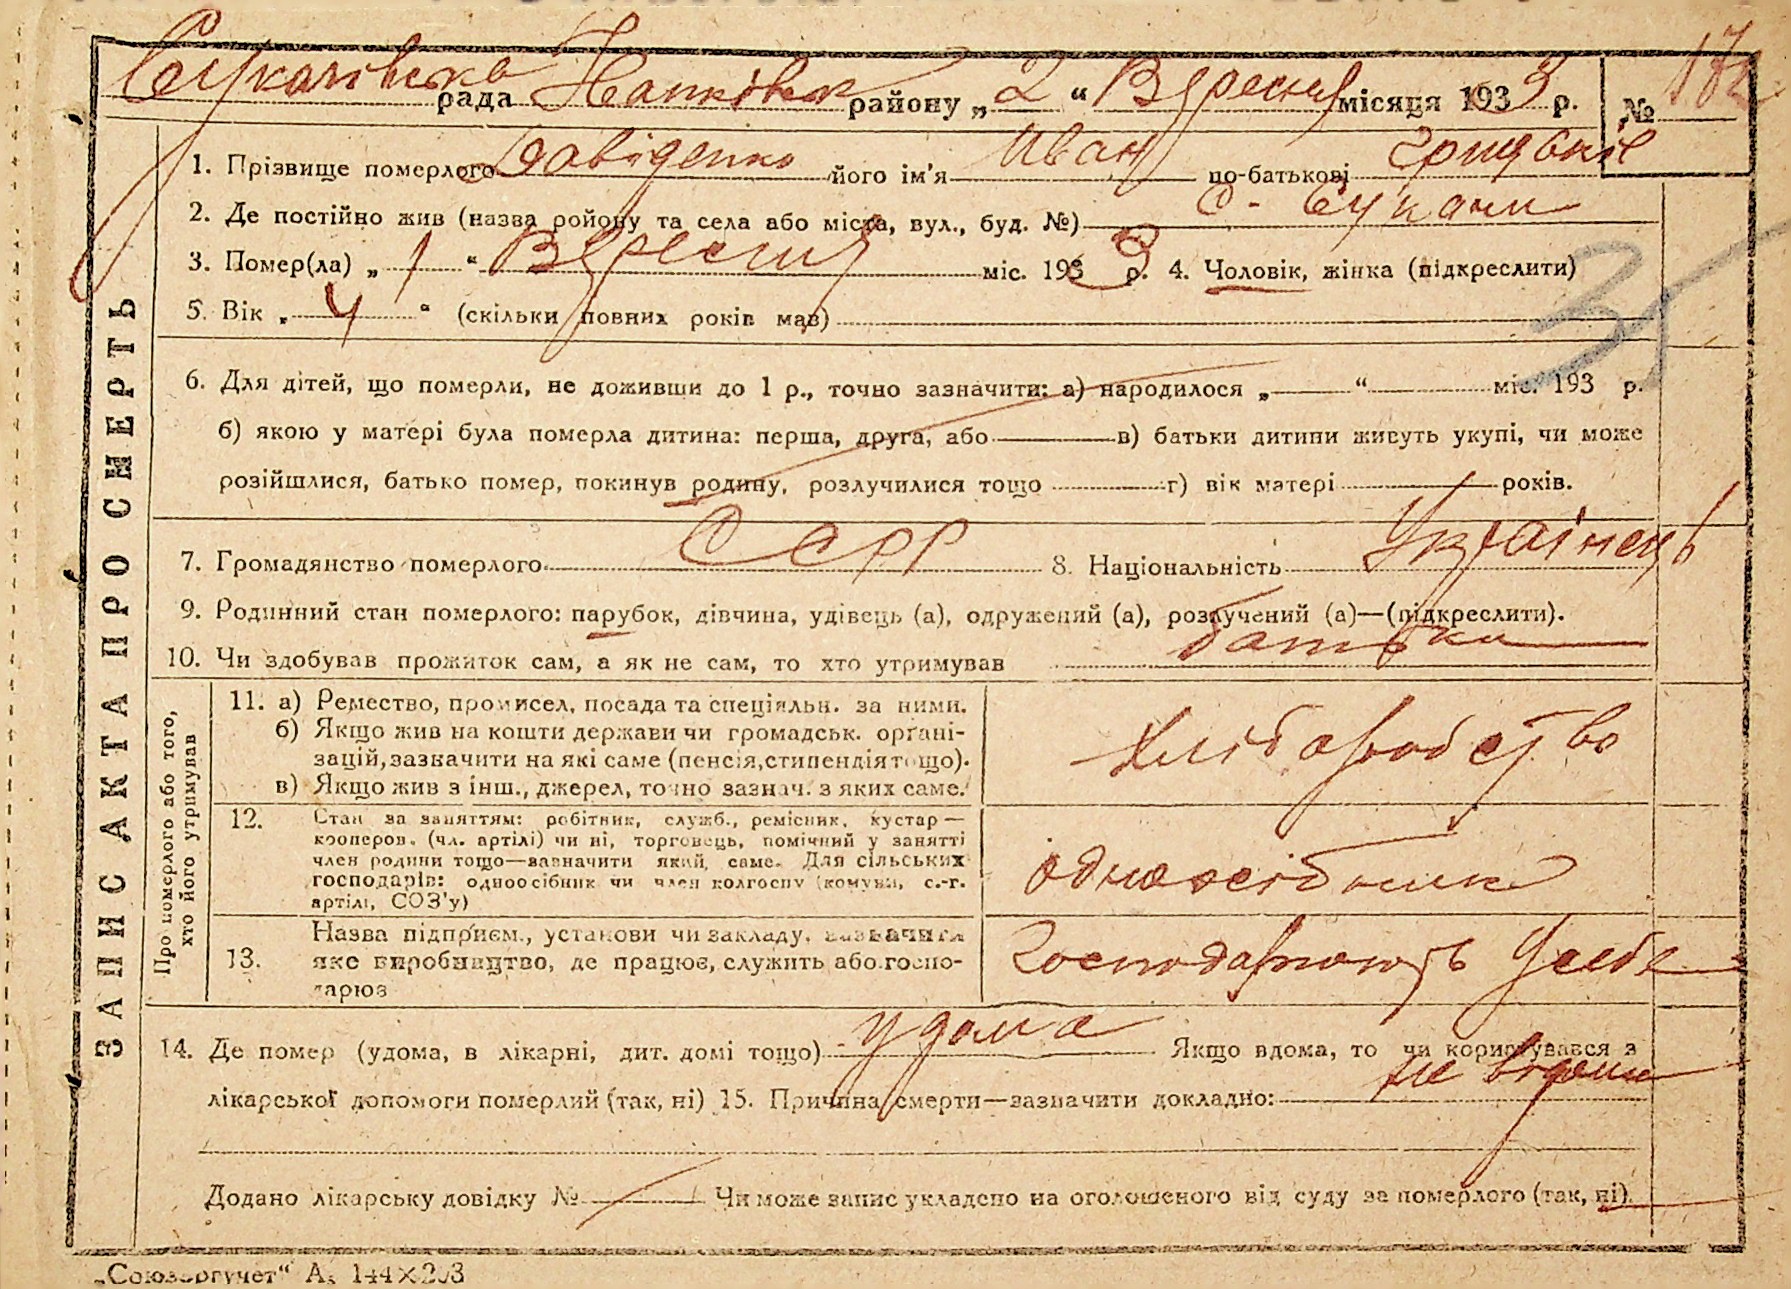 Сукачівська рада району „2“ Вересня місяця 1933 р. №
1. Прізвище померлого Давіденко його ім'я Иван по-батькові
2. Де постійно жив (назва ройону та села або міста, вул., буд. №) с. Сукачи
3. Помер(ла) „1“ Вересня міс. 1933 р. 4. Чоловік, жінка (підкреслити)
5. Вік „4“ (скільки повних років мав)
6. Для дітей, що померли, не доживши до 1 р., точно зазначити: а) народилося „ “ міс. 193 р.
б) якою у матері була померла дитина: перша, друга, або в) батьки дитини живуть укупі, чи може
розійшлися, батько помер, покинув родину, розлучилися тощо г) вік матері років.
7. Громадянство померлого СССР 8. Національність Українець
9. Родинний стан померлого: парубок, дівчина, удівець (а), одружений (а), розлучений (а)—(підкреслити).
10. Чи здобував прожиток сам, а як не сам, то хто утримував батьки
ЗАПИС АКТА ПРО СМЕРТЬ
Про померлого або того,
хто його утримував
11. а) Ремество, промисел, посада та спеціяльн. за ними.
б) Якщо жив на кошти держави чи громадськ. орґані-
зацій, зазначити на які саме (пенсія, стипендія тощо).
в) Якщо жив з інш., джерел, точно зазнач. з яких саме.
Хліборобство
12. Стан за заняттям: робітник, служб., ремісник, кустар—
кооперов. (чл. артілі) чи ні, торговець, помічний у занятті
член родини тощо—зазначити який саме. Для сільських
господарів: одноосібник чи член колгоспу (комуни, с.-г.
артілі, СОЗ'у)
одноосібник
13. Назва підприєм., установи чи закладу, зазначити
яке виробництво, де працює, служить або госпо-
дарює
Господарюють у себе
14. Де помер (удома, в лікарні, дит. домі тощо) удома Якщо вдома, то чи користувався з
лікарської допомоги померлий (так, ні) 15. Причина смерти—зазначити докладно: не відома
Додано лікарську довідку № Чи може запис укладено на оголошеного від суду за померлого (так, ні).
35
„Союзоргучет“ А₅ 144×203